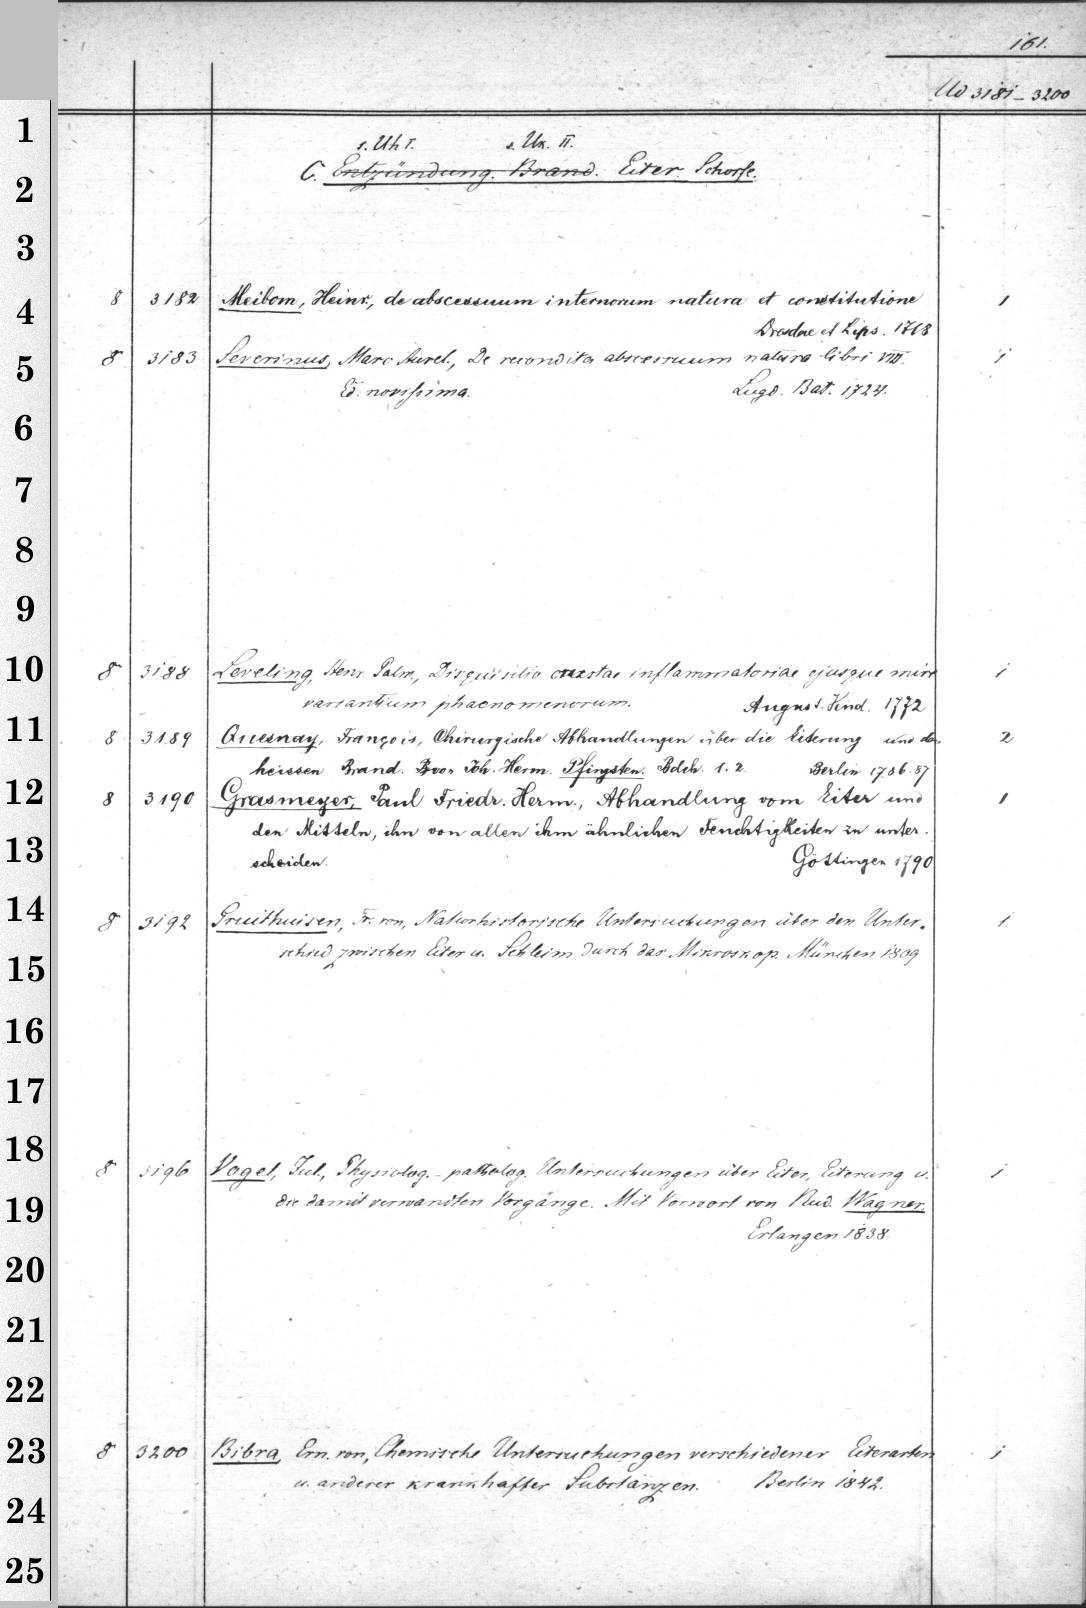 161.
Ud 3181-3200
1
s. Uh I. s. Uk. II.
2 C. Entzündung. Brand. Eiter. Schorfe.
3
4 8 3182 Meibom, Heinr., de abscessuum internorum natura et constitutione 1
Dresdae et Lips. 1718
5 8 3183 Severinus, Marc Aurel., De recondita abscessuum natura libri VIII. 1
6 Ed. novissima. Lugd. Bat. 1724.
7
8
9
10 8 3188 Leveling, Henr. Palm., Disquisitio crustae inflammatoriae ejusque mire 1
variantium phaenomenorum. August. Vind. 1772
11 8 3189 Quesnay, François, Chirurgische Abhandlungen über die Eiterung und den 2
heissen Brand. von Joh. Herm. Pfingsten. Bdch. 1. 2. Berlin 1786. 87
12 8 3190 Grasmeyer, Paul Friedr. Herm., Abhandlung vom Eiter und 1
den Mitteln, ihn von allen ihm ähnlichen Feuchtigkeiten zu unter-
13 scheiden. Göttingen 1790
14 8 3192 Gruithuisen, Fr. von, Naturhistorische Untersuchungen über den Unter- 1
15 schied zwischen Eiter u. Schleim durch das Mikroskop. München 1809
16
17
18 8 3196 Vogel, Jul., Physiolog.-patholog. Untersuchungen über Eiter, Eiterung u. 1
19 die damit verwandten Vorgänge. Mit Vorwort von Rud. Wagner.
Erlangen 1838
20
21
22
23 8 3200 Bibra, Ern. von, Chemische Untersuchungen verschiedener Eiterarten 1
u. anderer krankhafter Substanzen. Berlin 1842.
24
25